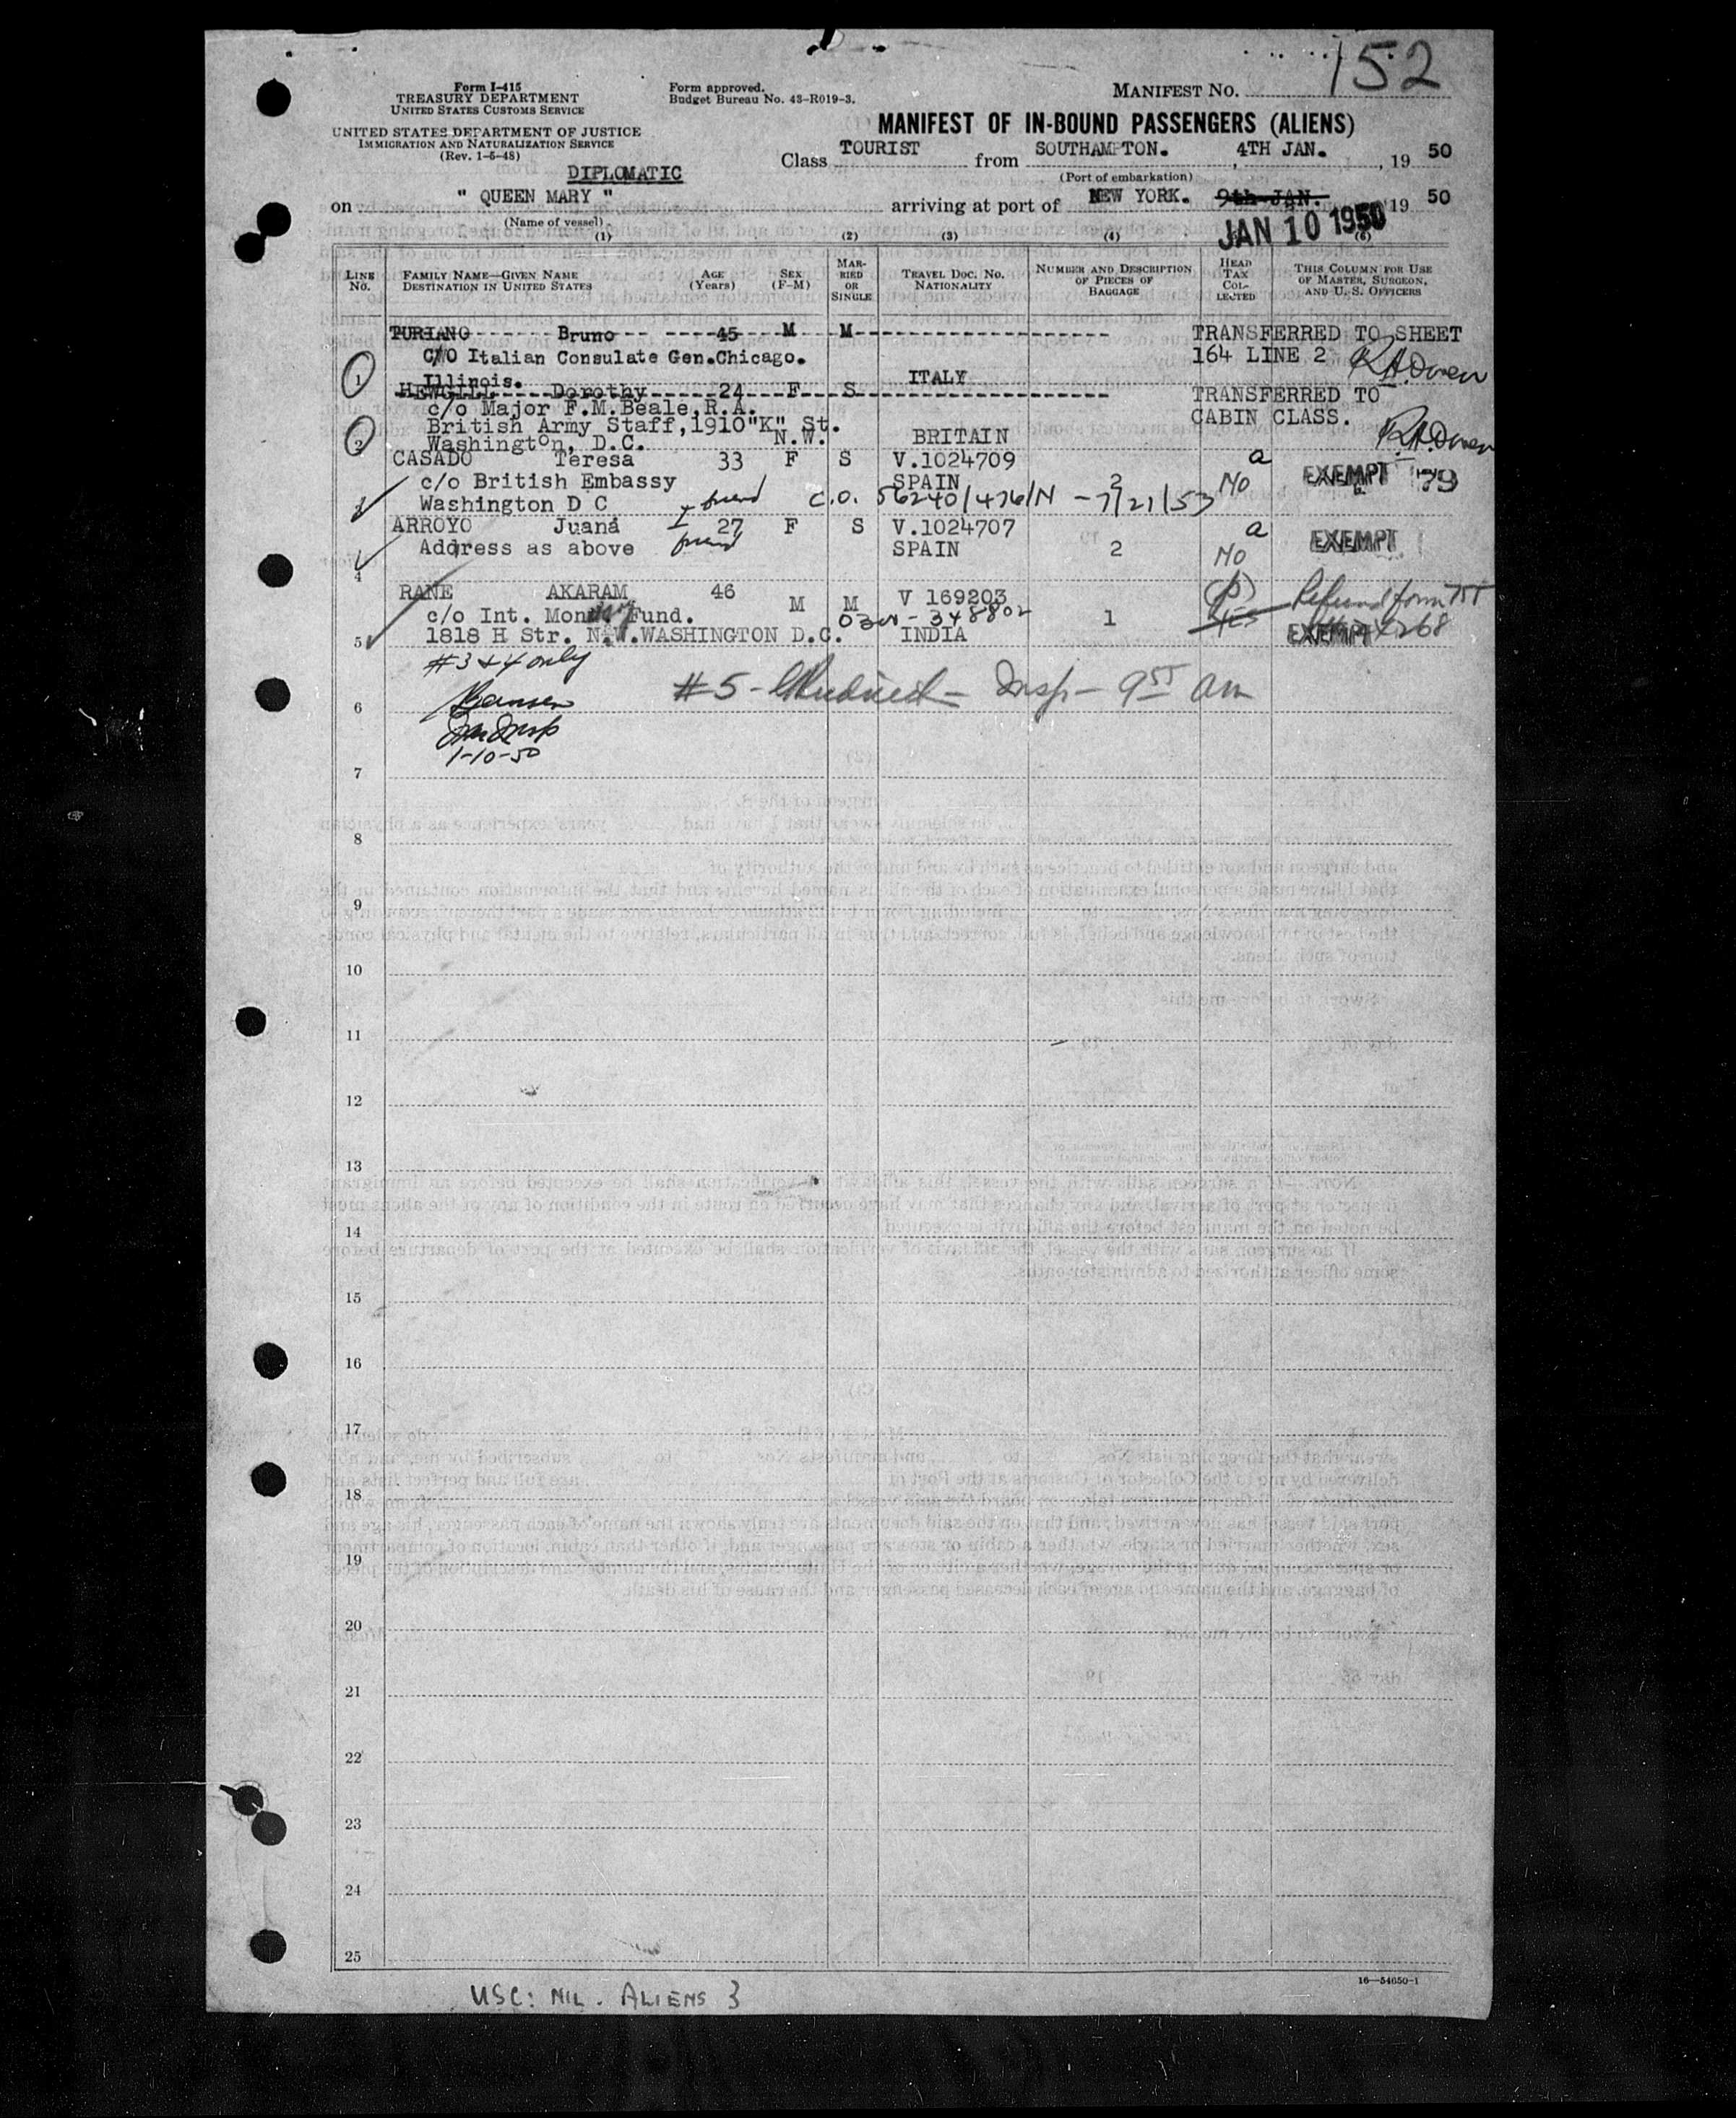 152
Form I-415
TREASURY DEPARTMENT
UNITED STATES CUSTOMS SERVICE
UNITED STATES DEPARTMENT OF JUSTICE
IMMIGRATION AND NATURALIZATION SERVICE
(Rev. 1-5-48)
Form approved.
Budget Bureau No. 43-R019-3.
MANIFEST NO.
MANIFEST OF IN-BOUND PASSENGERS (ALIENS)
Class TOURIST from SOUTHAMPTON. 4TH JAN. , 19 50
(Port of embarkation)
DIPLOMATIC
on " QUEEN MARY " arriving at port of NEW YORK. 9th JAN. 19 50
(Name of vessel)
JAN 10 1950
(1) (2) (3) (4) (6)
LINE NO.
FAMILY NAME—GIVEN NAME
DESTINATION IN UNITED STATES
AGE (Years)
SEX (F-M)
MARRIED OR SINGLE
TRAVEL DOC. NO. NATIONALITY
NUMBER AND DESCRIPTION OF PIECES OF BAGGAGE
HEAD TAX COLLECTED
THIS COLUMN FOR USE OF MASTER, SURGEON, AND U. S. OFFICERS
TURIANO Bruno 45 M M TRANSFERRED TO SHEET
C/O Italian Consulate Gen.Chicago. 164 LINE 2
1 Illinois. ITALY
HEWGILL Dorothy 24 F S TRANSFERRED TO
c/o Major F.M.Beale,R.A. CABIN CLASS.
British Army Staff,1910"K" St.
2 Washington, D.C. N.W. BRITAIN
CASADO Teresa 33 F S V.1024709 a
c/o British Embassy SPAIN 2 No EXEMPT
3 Washington D C friend C.O. 56240/476/N - 7/21/53
ARROYO Juana 27 F S V.1024707 a
Address as above friend SPAIN 2 No EXEMPT
4
RANE AKARAM 46 M M V 169203 1
c/o Int. Monetary Fund.
5 1818 H Str. N.W.WASHINGTON D.C. INDIA EXEMPT
#3 & 4 only
#5 - Insp - am
1-10-50
6
7
8
9
10
11
12
13
14
15
16
17
18
19
20
21
22
23
24
25
16—54650-1
USC: NIL. ALIENS 3